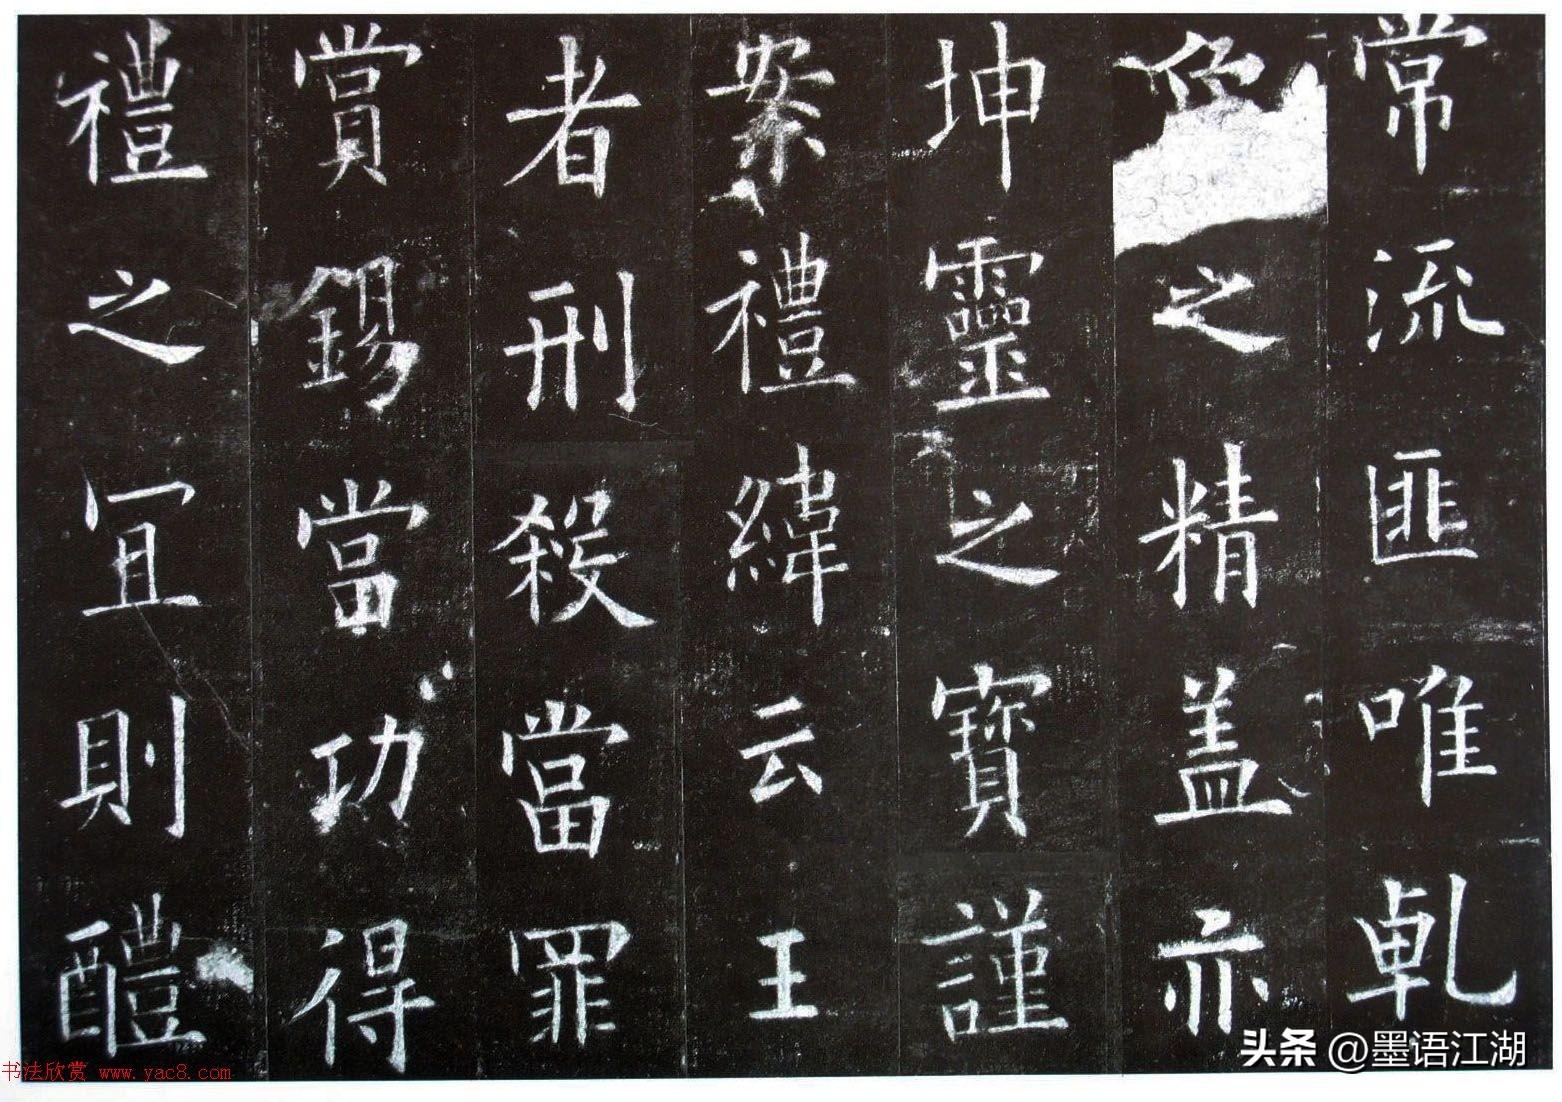 常流匪唯乹
之精盖亦
坤靈之寶謹
案禮緯云王
者刑殺當罪
賞錫當功得
禮之宜則醴
头条 @墨语江湖
书法欣赏 www.yac8.com